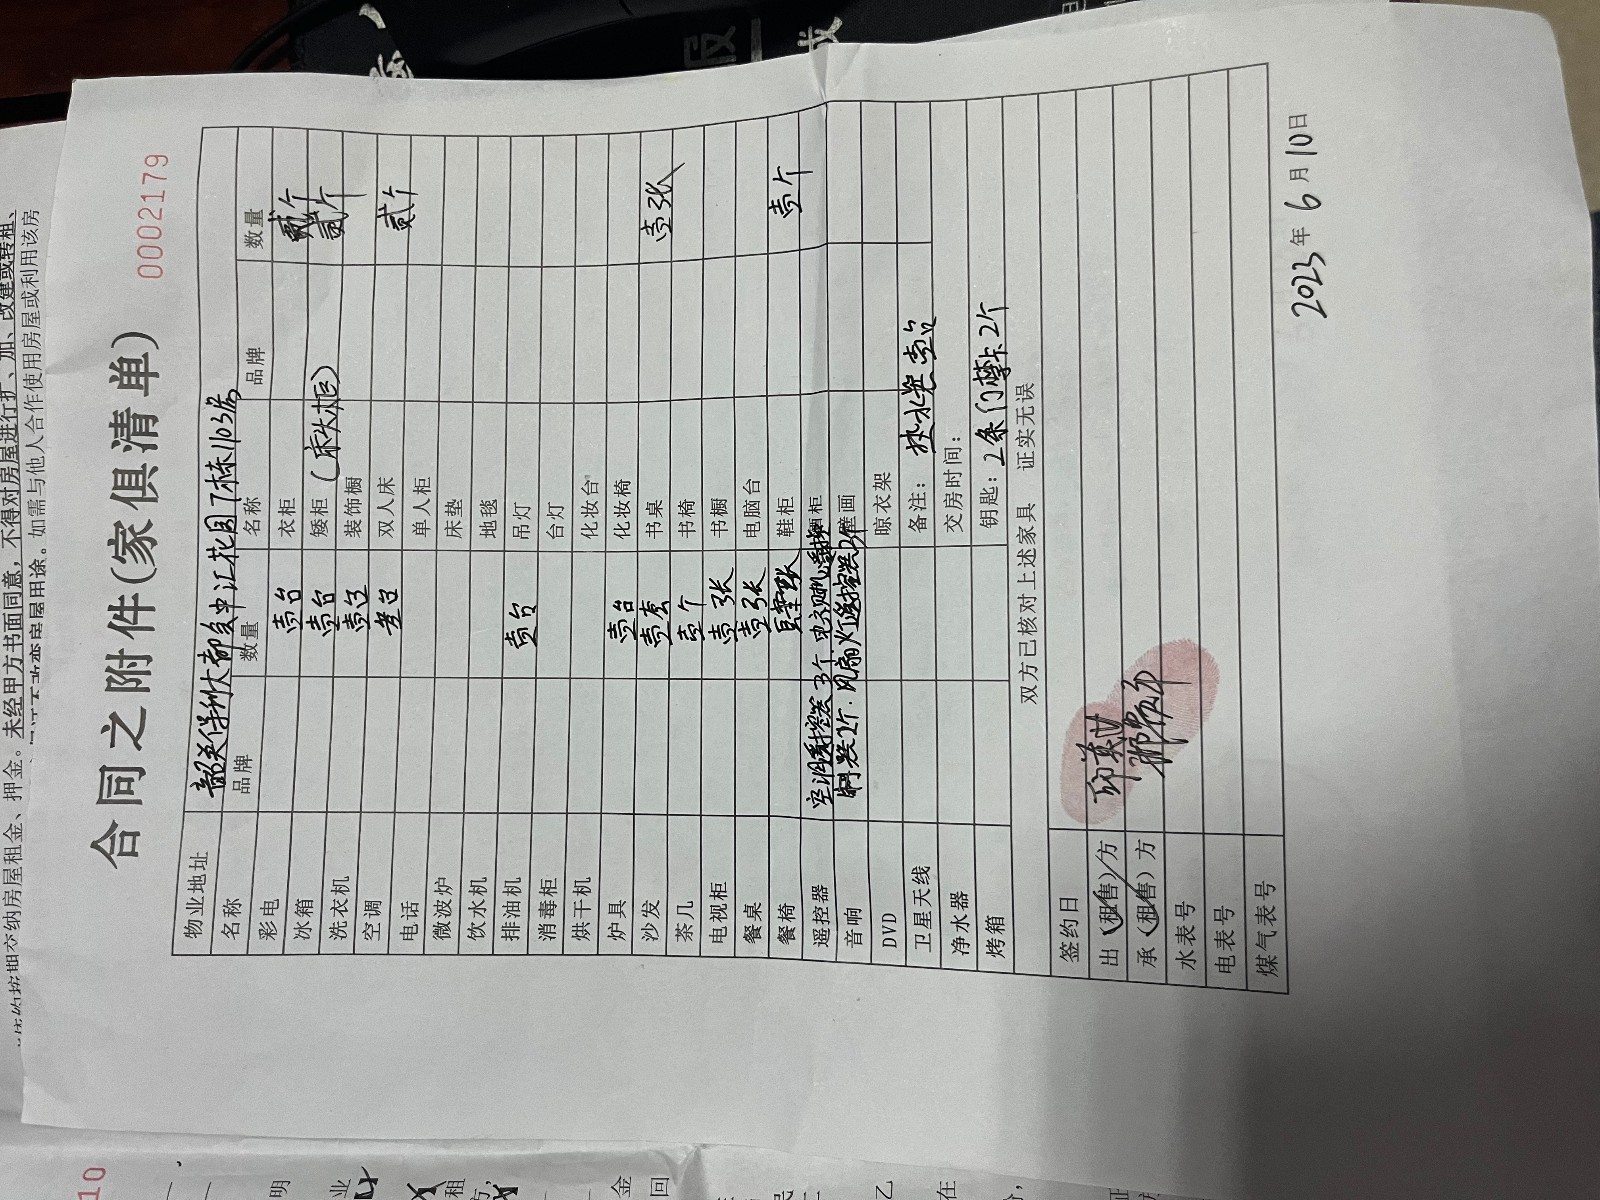 未经甲方书面同意，不得对房屋进行扩、加、改建或转租、
如需与他人合作使用房屋或利用该房
合同之附件(家俱清单)
0002179
物业地址
名称 品牌 数量 名称 品牌 数量
彩电 壹台 衣柜 贰个
冰箱 壹台 矮柜 (床头柜) 贰个
洗衣机 壹台 装饰橱
空调 双人床 贰个
电话 单人柜
微波炉 床垫
饮水机 地毯
排油机 壹台 吊灯
消毒柜 台灯
烘干机 化妆台
炉具 壹台 化妆椅
沙发 壹套 书桌 壹张
茶几 壹个 书椅
电视柜 壹张 书橱
餐桌 壹张 电脑台
餐椅 鞋柜 壹个
遥控器 空调遥控器3个
音响 壁画
DVD 晾衣架
卫星天线 备注： 热水器壹台
净水器 交房时间：
烤箱 钥匙：2条门禁卡2个
双方已核对上述家具 证实无误
签约日
出（租售）方
承（租售）方
水表号
电表号
煤气表号
2023年6月10日
10
明
业
租
方，
金
回
乙
在